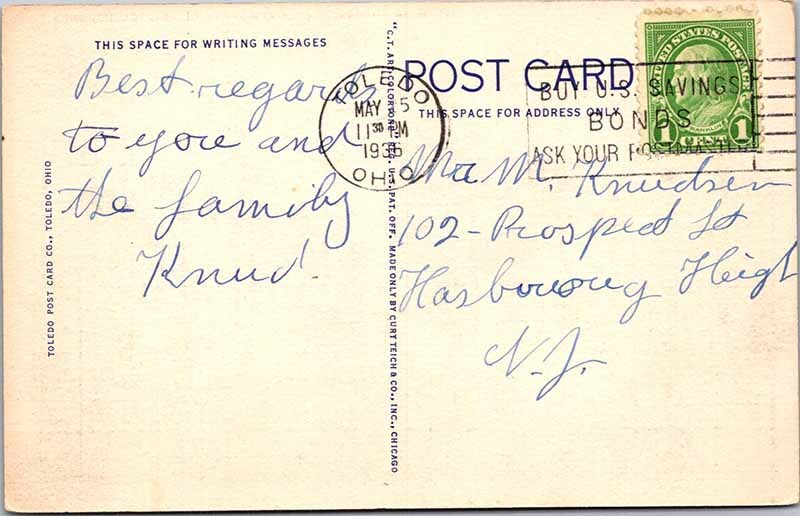 THIS SPACE FOR WRITING MESSAGES
Best regards
to you and
the family
Knud.
TOLEDO POST CARD CO., TOLEDO, OHIO
"C.T. ART-COLORTONE" REG. U.S. PAT. OFF. MADE ONLY BY CURT TEICH & CO., INC., CHICAGO
POST CARD
THIS SPACE FOR ADDRESS ONLY
TOLEDO
MAY 5
11 30 PM
1936
OHIO
BUY U.S. SAVINGS
BONDS
ASK YOUR POSTMASTER
UNITED STATES POSTAGE
FRANKLIN
1 1
M. Knudsen
102 - Prospect St
Hasbouroug Height
N.J.